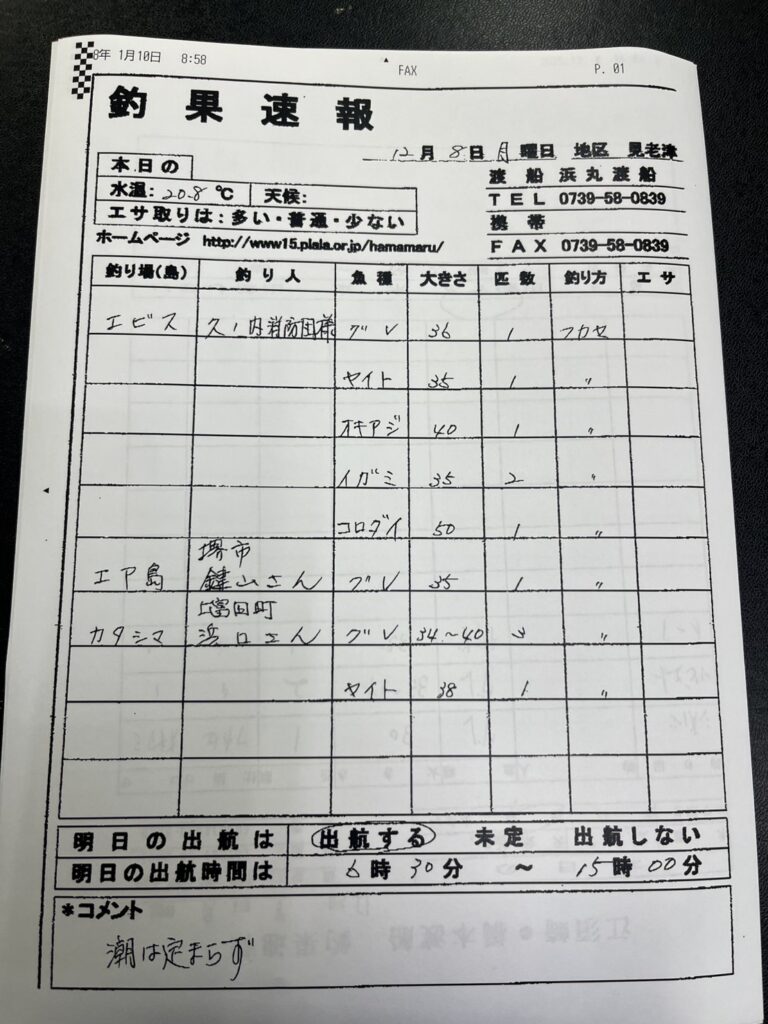 8年 1月10日 8:58 FAX P. 01
釣果速報
12月 8日 月曜日 地区 見老津
本日の
水温: 20.8 ℃ 天候:
エサ取りは:多い・普通・少ない
渡船 浜丸渡船
TEL 0739-58-0839
携帯
FAX 0739-58-0839
ホームページ http://www15.plala.or.jp/hamamaru/
釣り場(島) 釣り人 魚種 大きさ 匹数 釣り方 エサ
エビス 久ノ内消防団様 グレ 36 1 フカセ
ヤイト 35 1 〃
オキアジ 40 1 〃
イガミ 35 2 〃
コロダイ 50 1 〃
堺市
エア島 鍵山さん グレ 35 1 〃
上富田町
カタシマ 浜口さん グレ 34～40 3 〃
ヤイト 38 1 〃
明日の出航は 出航する 未定 出航しない
明日の出航時間は 6時30分 ～ 15時00分
*コメント
潮は定まらず